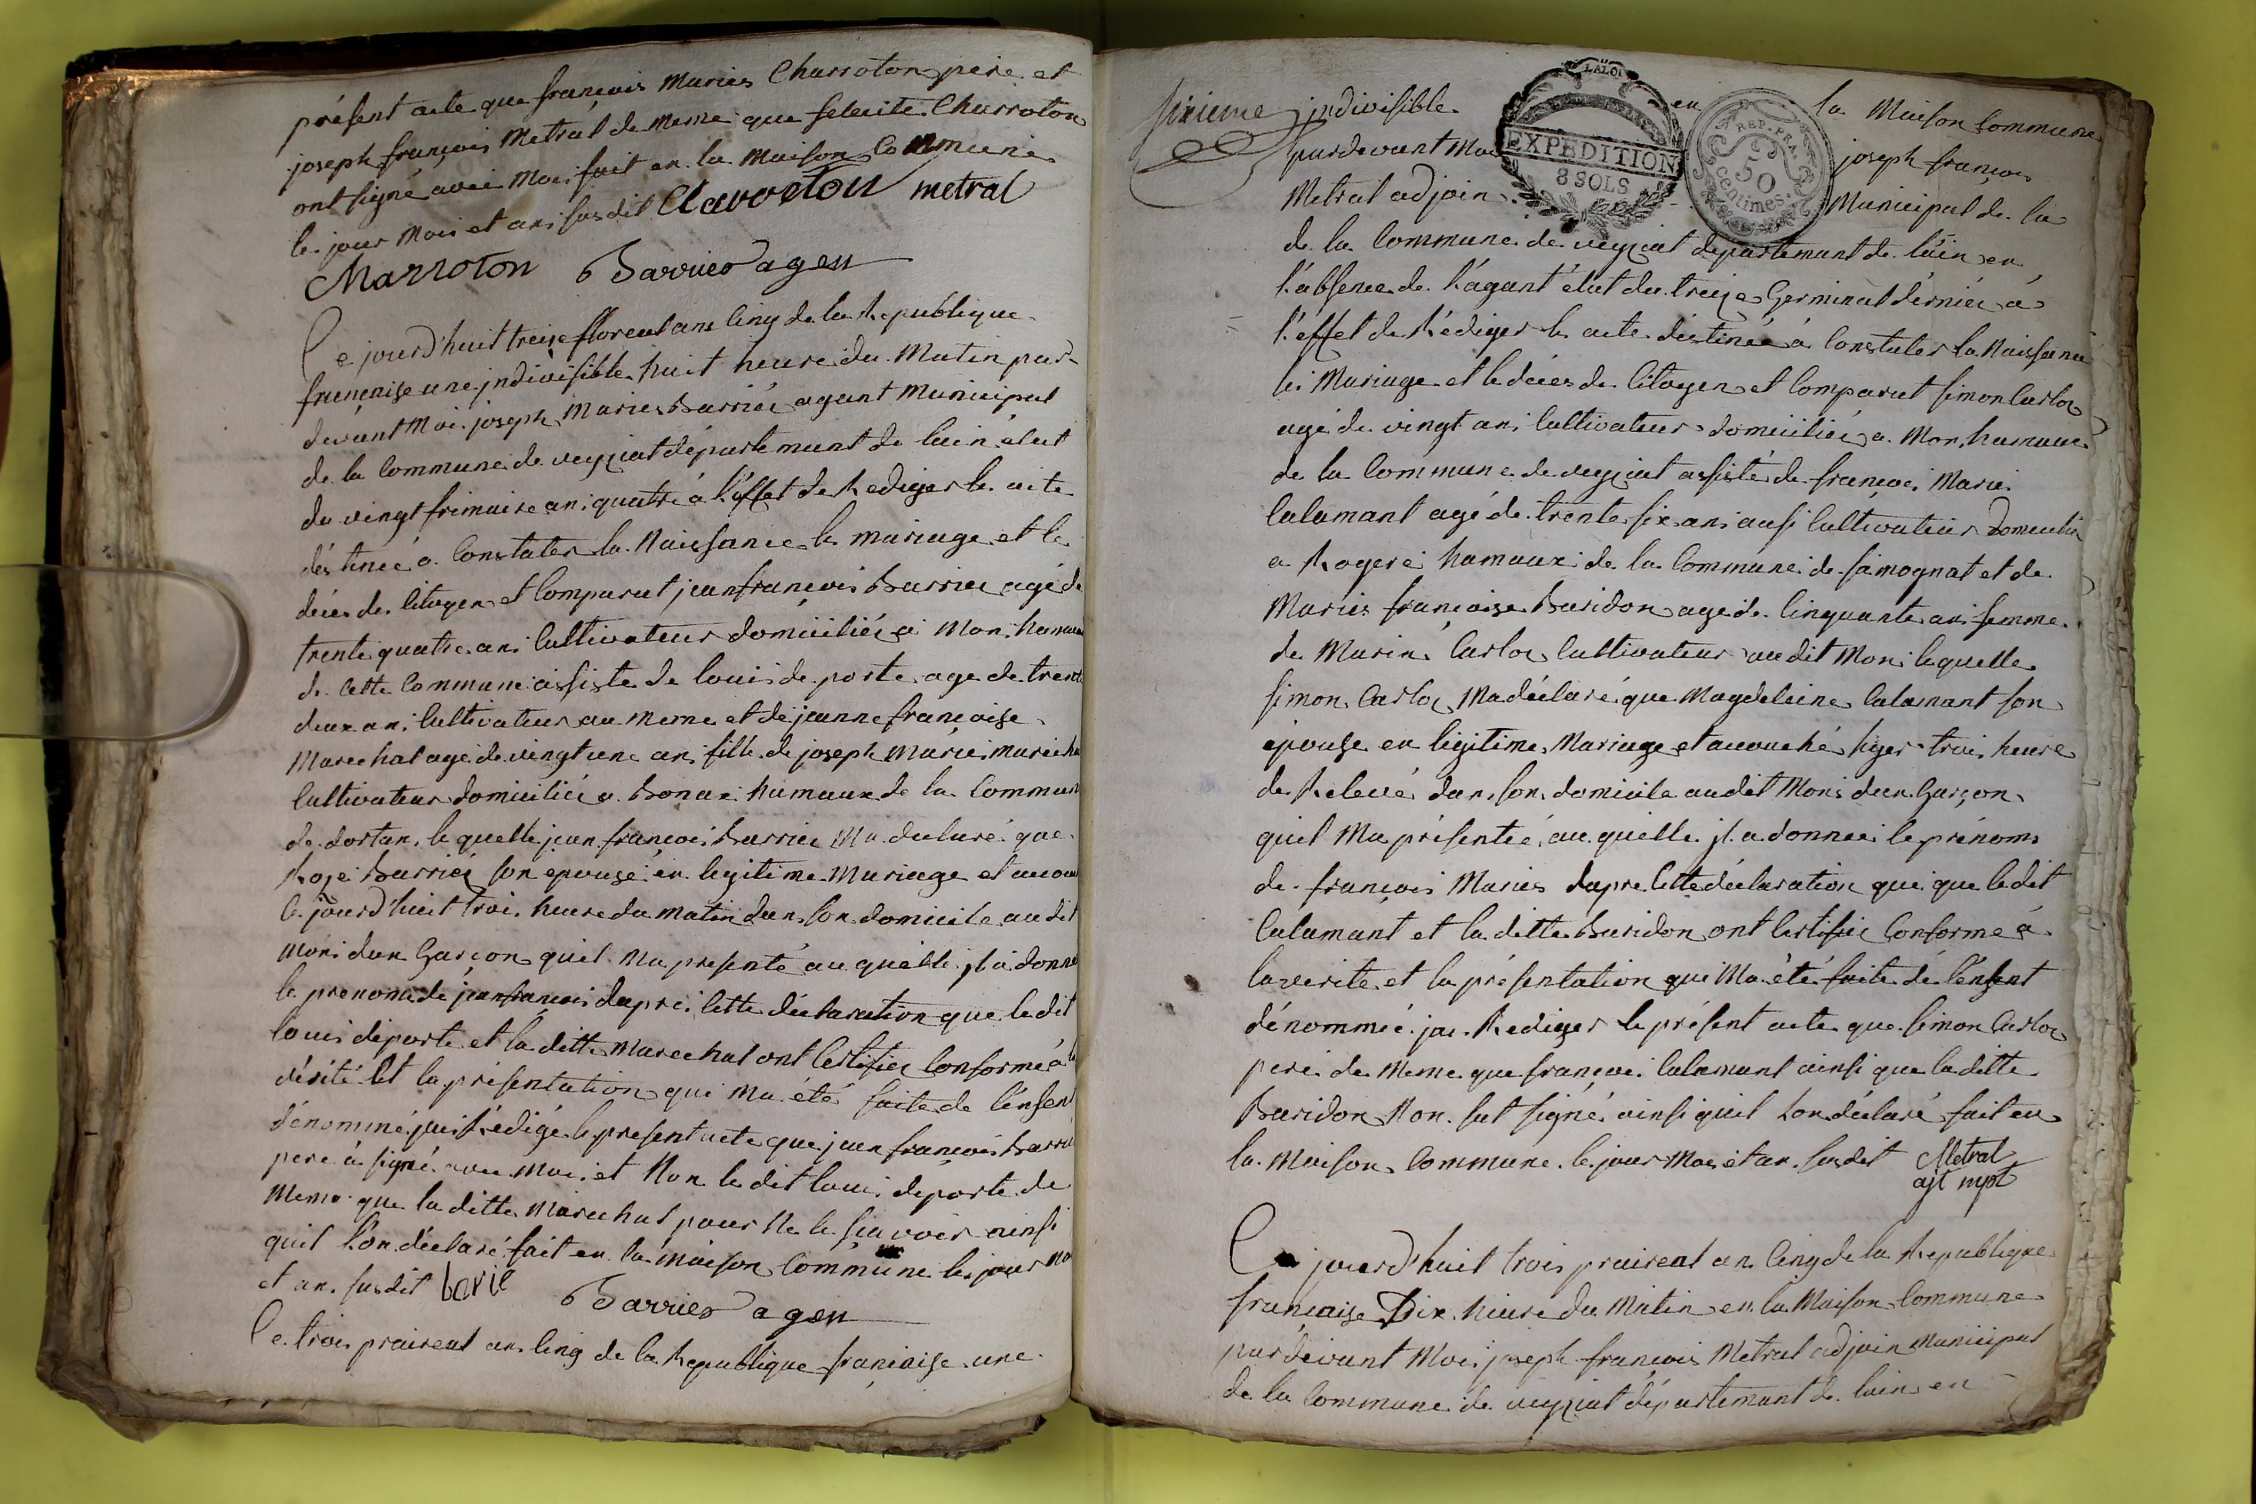 présent acte que françois Maries Charroton pere et
joseph françois Metral de meme que feleicite Charroton
ont signé avec Moi fait en la Maison Commune
le jour Mois et ans susdit Clavoton metral
Marroton Barrier agen
Ce jourd'huit treize floreal ans Cinq de la Republique
françaixe une jndivisible huit heure du Matin par
devant Moi joseph Maries Barrier agant Municipal
de la Commune de veyziat département de lain élut
du vingt frimaire ans quatre à l'éffet de Rediger les acte
déstinée a Constater la Naissance le mariage et le
déces des Citoyen et Comparut jean françois Barrier agé de
trente quatre ans Cultivateur domicilié a Mons hamaux
de Cette Commune assiste de louis de porte age de trente
deux ans Cultivateur au meme et de jeanne françoise
Marechal agé de vingt une ans fille de joseph Marie marechal
Cultivateur domicilié a Bonaz hamaux de la Commun
de dortan le quelle jean françois Barrier Ma déclaré que
Roze Barrier son epouse én legitime Mariage et acou
Ce jourd'huit trois heure du matin dans son domicile au dit
Mons dun Garçon quil Ma presenté au quelle jl a donné
le prenom de jean françois dapres Cette déclaration que le dit
louis déporte et la ditte Marechal ont Certifiez Conforme a la
vérité Et la présentation qui Ma été faite de lénfent
dénommé jai Rédigé le present acte que jean françois Barrie
pere a signé avec Moi et Non le dit louis déporte de
Meme que la ditte Marechal pour Ne le sçavoir ainsi
quil l'on déclaré fait en la Maison Commune les jour Mo
et ans susdit barie Barrier agen
Ce trois praireal ans Cinq de la Republique françaixe une
sixieme jndivisible en la Maison Commune
pardevant Moi joseph françois
Metral adjoin Municipal de la
LALOI
EXPEDITION
8 SOLS
REP. FRA.
50
centimes.
de la Commune de veyziat departemant de láin en
l'absence de l'ágant élut du treize Germinal dérniér à
l'effet de Rédiger les acte déstinée a Constater la Naissance
les Mariage et le déces de Citoyen et Comparut simon Carloz
agé de vingt ans Cultivateur domicilié a Mons hamaux
de la Commune de veyziat assisté de françois Marie
Calamant agé de trente six ans ausi Cultivateur Domicilié
a Rogere hamaux de la Commune de samognat et de
Maries françoise Buridon age de Cinquante ans femme
de Marin Carloz Cultivateur au dit Mons lequelle
simon Carloz Ma déclaré que Magdeleine Calamant son
épouse en légitime Mariage et acouché hyer trois heure
de Relevé dans son domicile au dit Mons dun Garçon
quil Ma présentée au quelle jl a donnee le prénoms
de françois Maries dapre Cette déclaration que que ledit
Calamant et la ditte Buridon ont Certifiéz Conforme á
la verite et la présentation qui Ma été faite de lénfent
dénommée jai Rediger le présent acte que simon Carloz
pere de Meme que françois Calamant ainsi que la ditte
Buridon Non sut signé ainsi quil lon déclaré fait en
la Maison Commune le jour Mois et an susdit Metral
ajt mpt
Ce jourd'huit trois praireal ans Cinq de la Republique
françaize Dix hieure du Matin en la Maison Commune
pardevant Moi joseph françois Metral adjoin Municipal
de la Commune de veyziat département de lain en